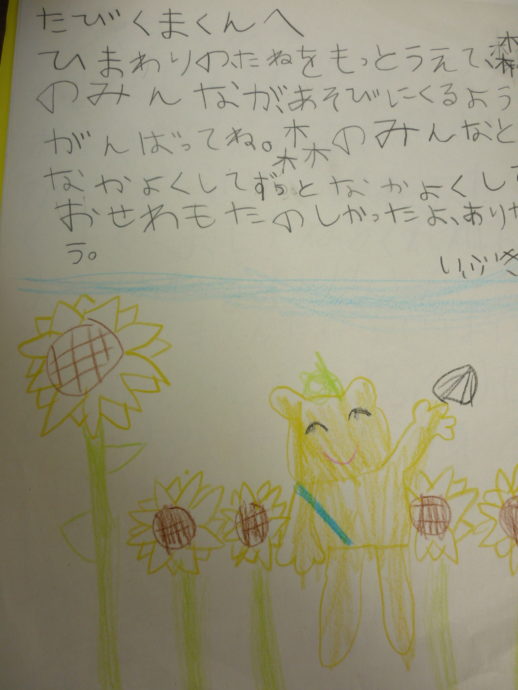 たびくまくんへ
ひまわりのたねをもっとうえて、森
のみんながあそびにくるよう
がんばってね。森のみんなと
なかよくしてずっとなかよくして
おせわもたのしかったよ、ありが
う。
いぶき